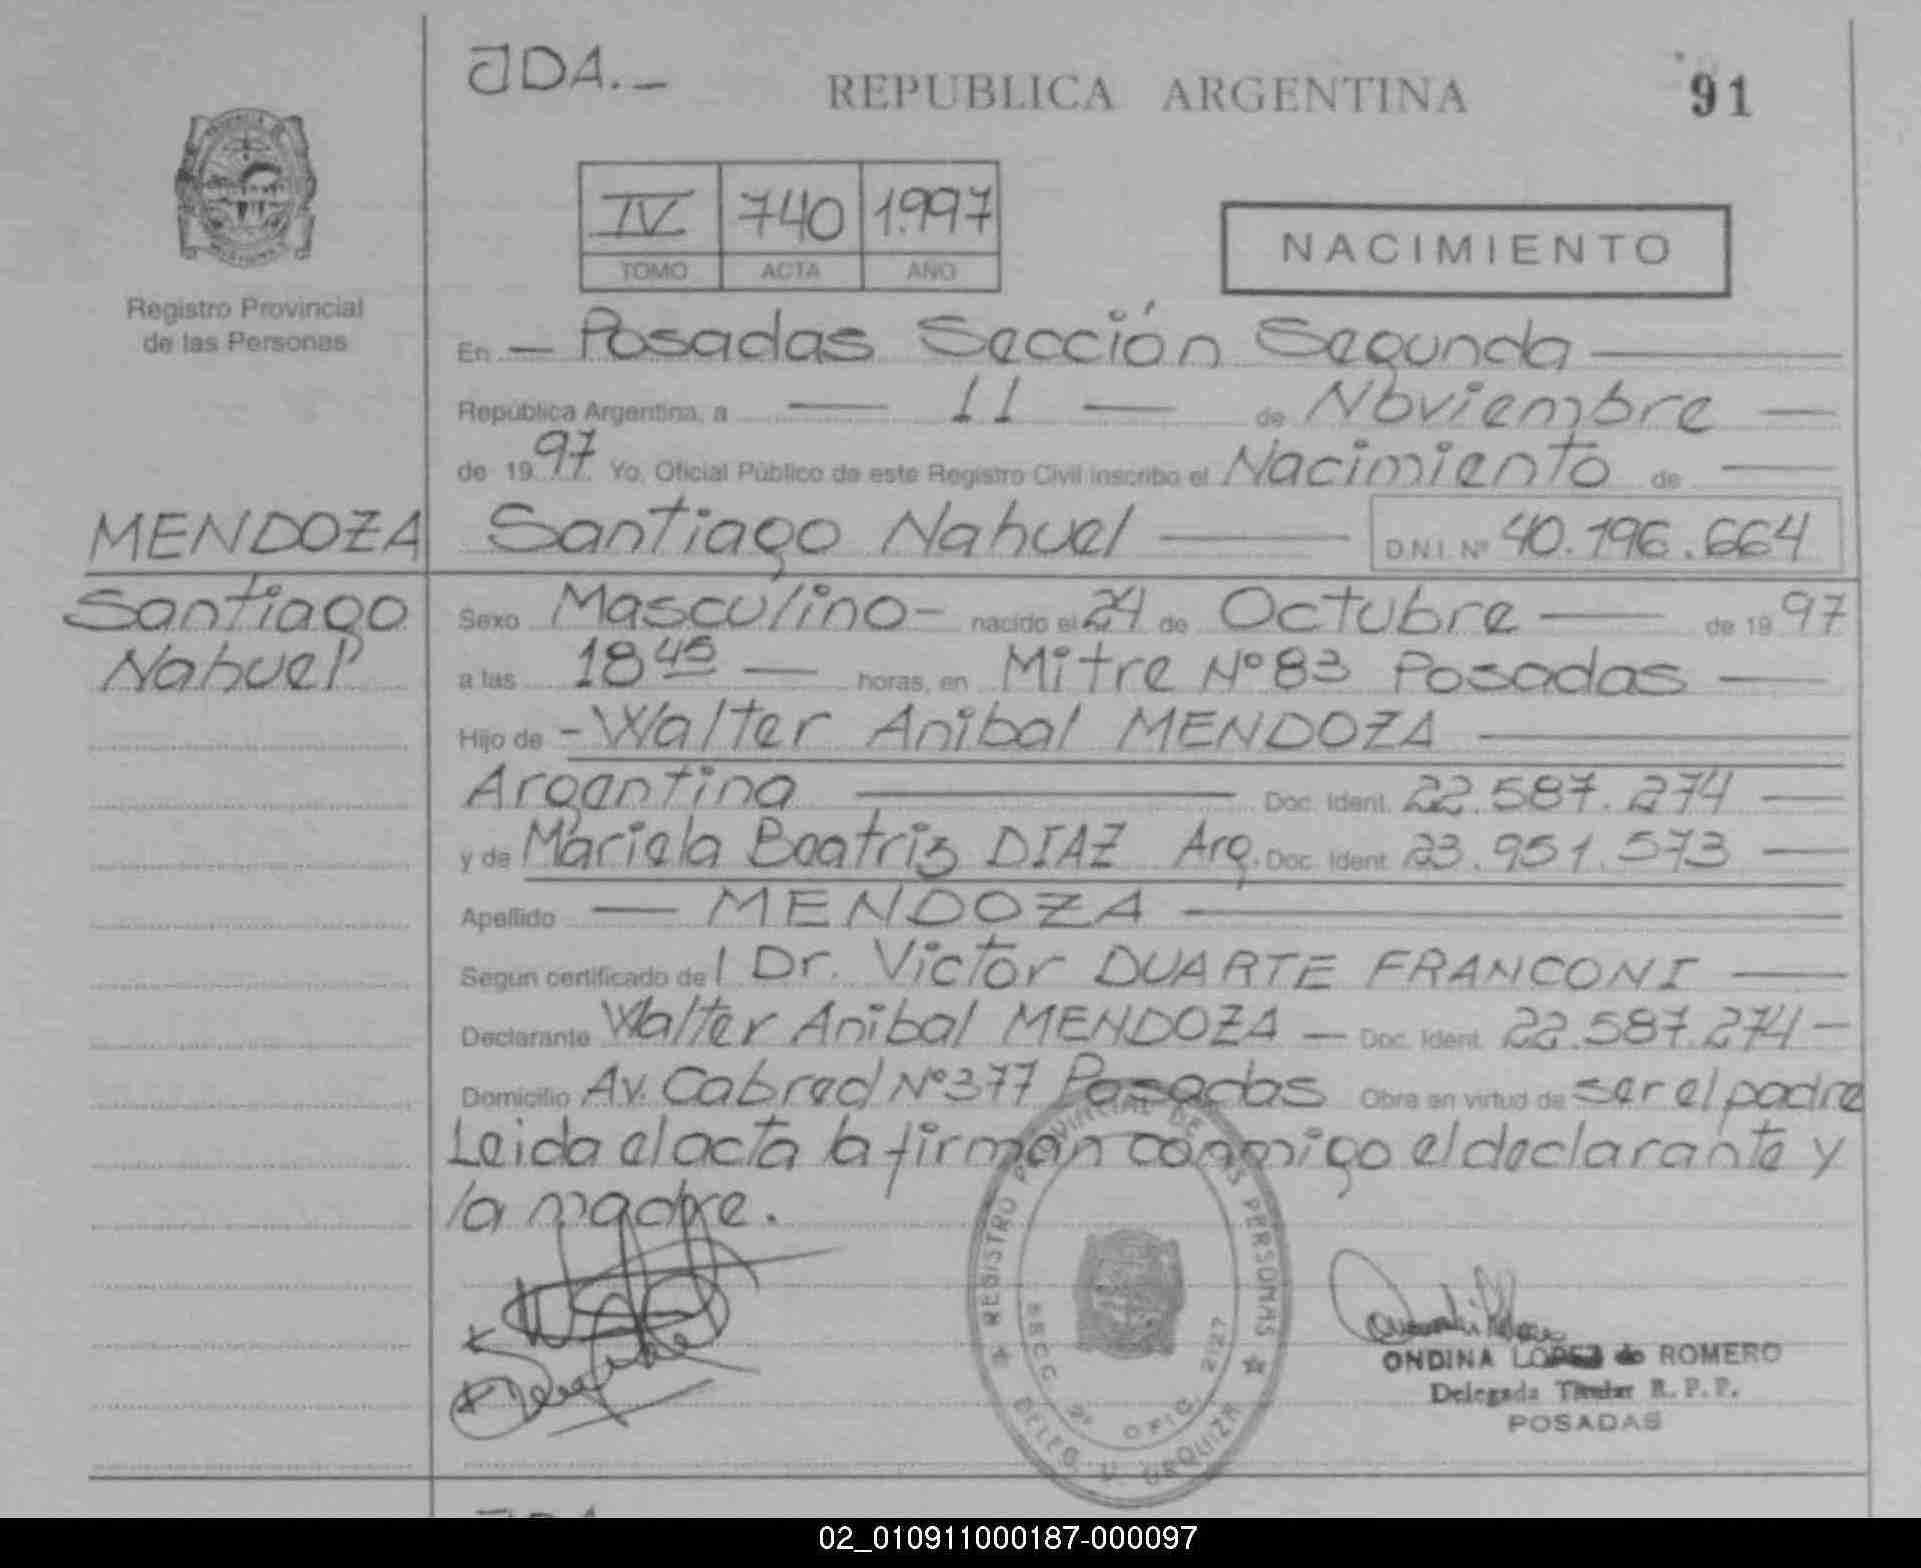 JDA.-
REPUBLICA ARGENTINA
91
IV 740 1.997
TOMO ACTA AÑO
NACIMIENTO
Registro Provincial
de las Personas
En — Posadas Sección Segunda —
República Argentina, a — 11 — de Noviembre —
de 1997 Yo, Oficial Público de este Registro Civil inscribo el Nacimiento de —
MENDOZA
Santiago Nahuel — D.N.I. Nº 40.196.664
Santiago
Nahuel
Sexo Masculino - nacido el 24 de Octubre — de 1997
a las 18 45 — horas, en Mitre Nº 83 Posadas —
Hijo de - Walter Anibal MENDOZA —
Argentina — Doc. Ident. 22.587.274 —
y de Mariela Beatriz DIAZ Arg. Doc. Ident. 23.951.573 —
Apellido — MENDOZA —
Segun certificado del Dr. Victor DUARTE FRANCONI —
Declarante Walter Anibal MENDOZA — Doc. Ident. 22.587.274 —
Domicilio Av. Cabred Nº 377 Posadas Obra en virtud de ser el padre
Leida el acta la firman conmigo el declarante y
la madre.
REGISTRO PROVINCIAL DE LAS PERSONAS
SECC. 2º OFIC. 2127
DELEG. V. URQUIZA
ONDINA LOPEZ de ROMERO
Delegada Titular R. P. P.
POSADAS
02_010911000187-000097